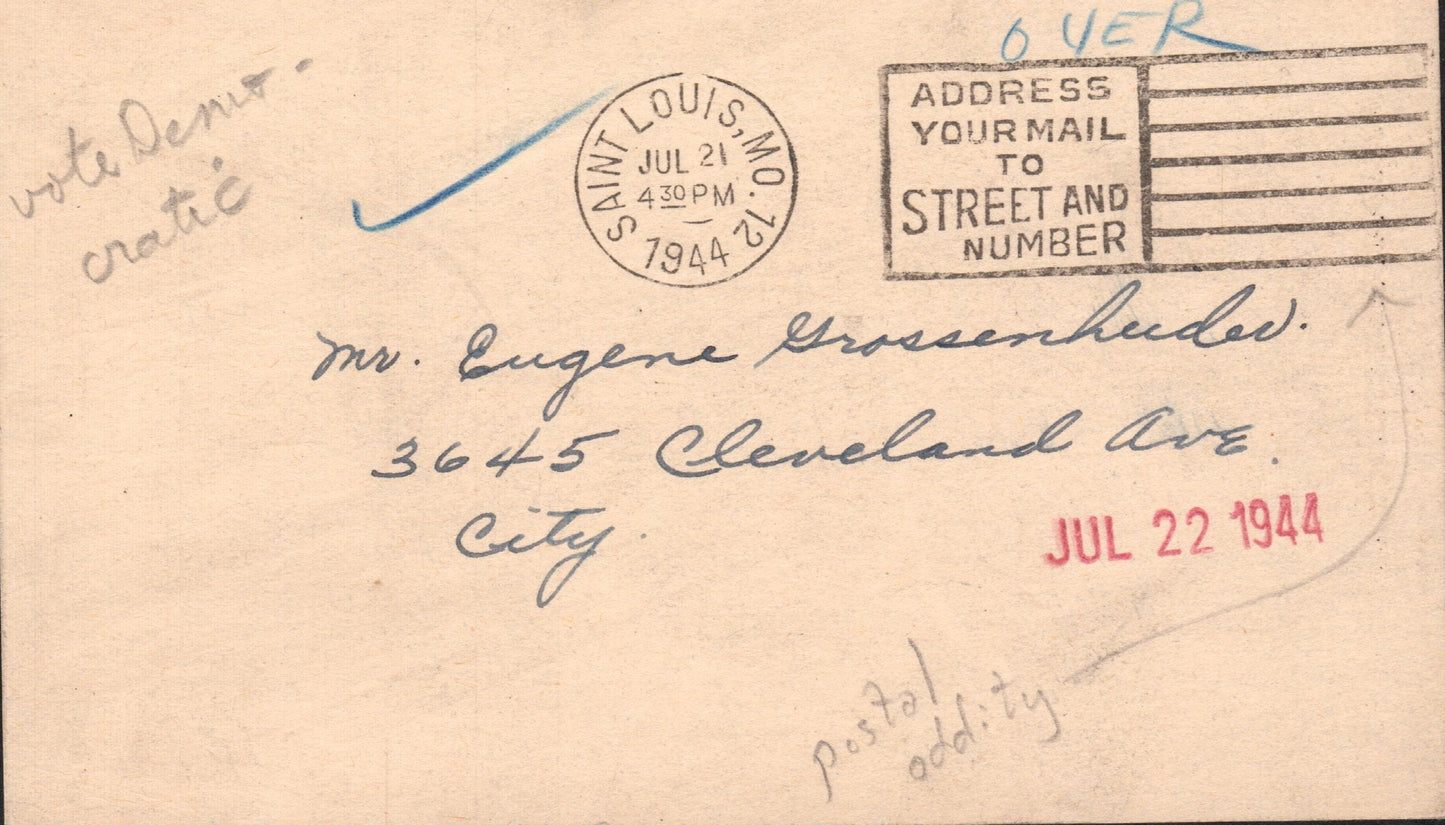 OVER
vote Demo-
cratic
SAINT LOUIS, MO. 12
JUL 21
4 30 PM
1944
ADDRESS
YOUR MAIL
TO
STREET AND
NUMBER
Mr. Eugene Grossenheider.
3645 Cleveland Ave.
City.
JUL 22 1944
postal
oddity